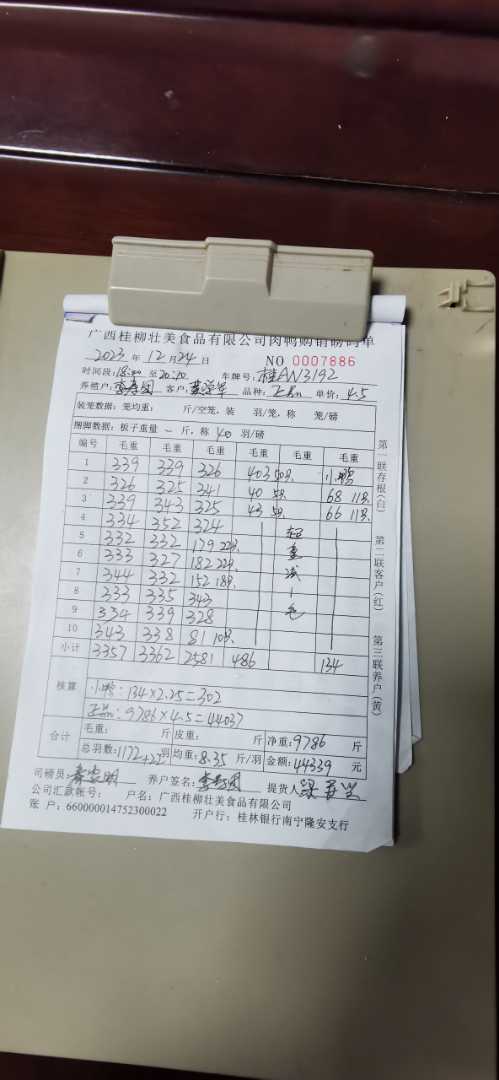 广西桂柳壮美食品有限公司肉鸭购销磅码单
2023 年 12 月 24 日 NO 0007886
时间段: 18:00 至 20:20 车牌号: 桂AN3192
养殖户: 客户: 品种: 正品 单价: 4.5
装笼数据: 笼均重: 斤/空笼, 装 羽/笼, 称 笼/磅
捆脚数据: 板子重量 一 斤, 称 40 羽/磅
编号 毛重 毛重 毛重 毛重 毛重 毛重
1 339 339 326 403 50只. 小鸭
2 326 325 341 40 5只. 68 11只.
3 339 343 325 43 5只. 66 11只.
4 334 352 324
5 332 332 179 22只. 超
6 333 327 182 22只. 重
7 344 332 152 18只. 减
8 333 335 343 1
9 334 339 328 毛
10 343 338 81 10只.
小计 3357 3362 2581 486 134
核算 小鸭: 134×2.25=302
正品: 9786×4.5=44037
合计 毛重: 斤 皮重: 斤 净重: 9786 斤
总羽数: 1172+22 羽 均重: 8.35 斤/羽 金额: 44339 元
司磅员: 养户签名: 提货人
公司汇款账号: 户名: 广西桂柳壮美食品有限公司
账 户: 660000014752300022 开户行: 桂林银行南宁隆安支行
第一联存根(白)
第二联客户(红)
第三联养户(黄)